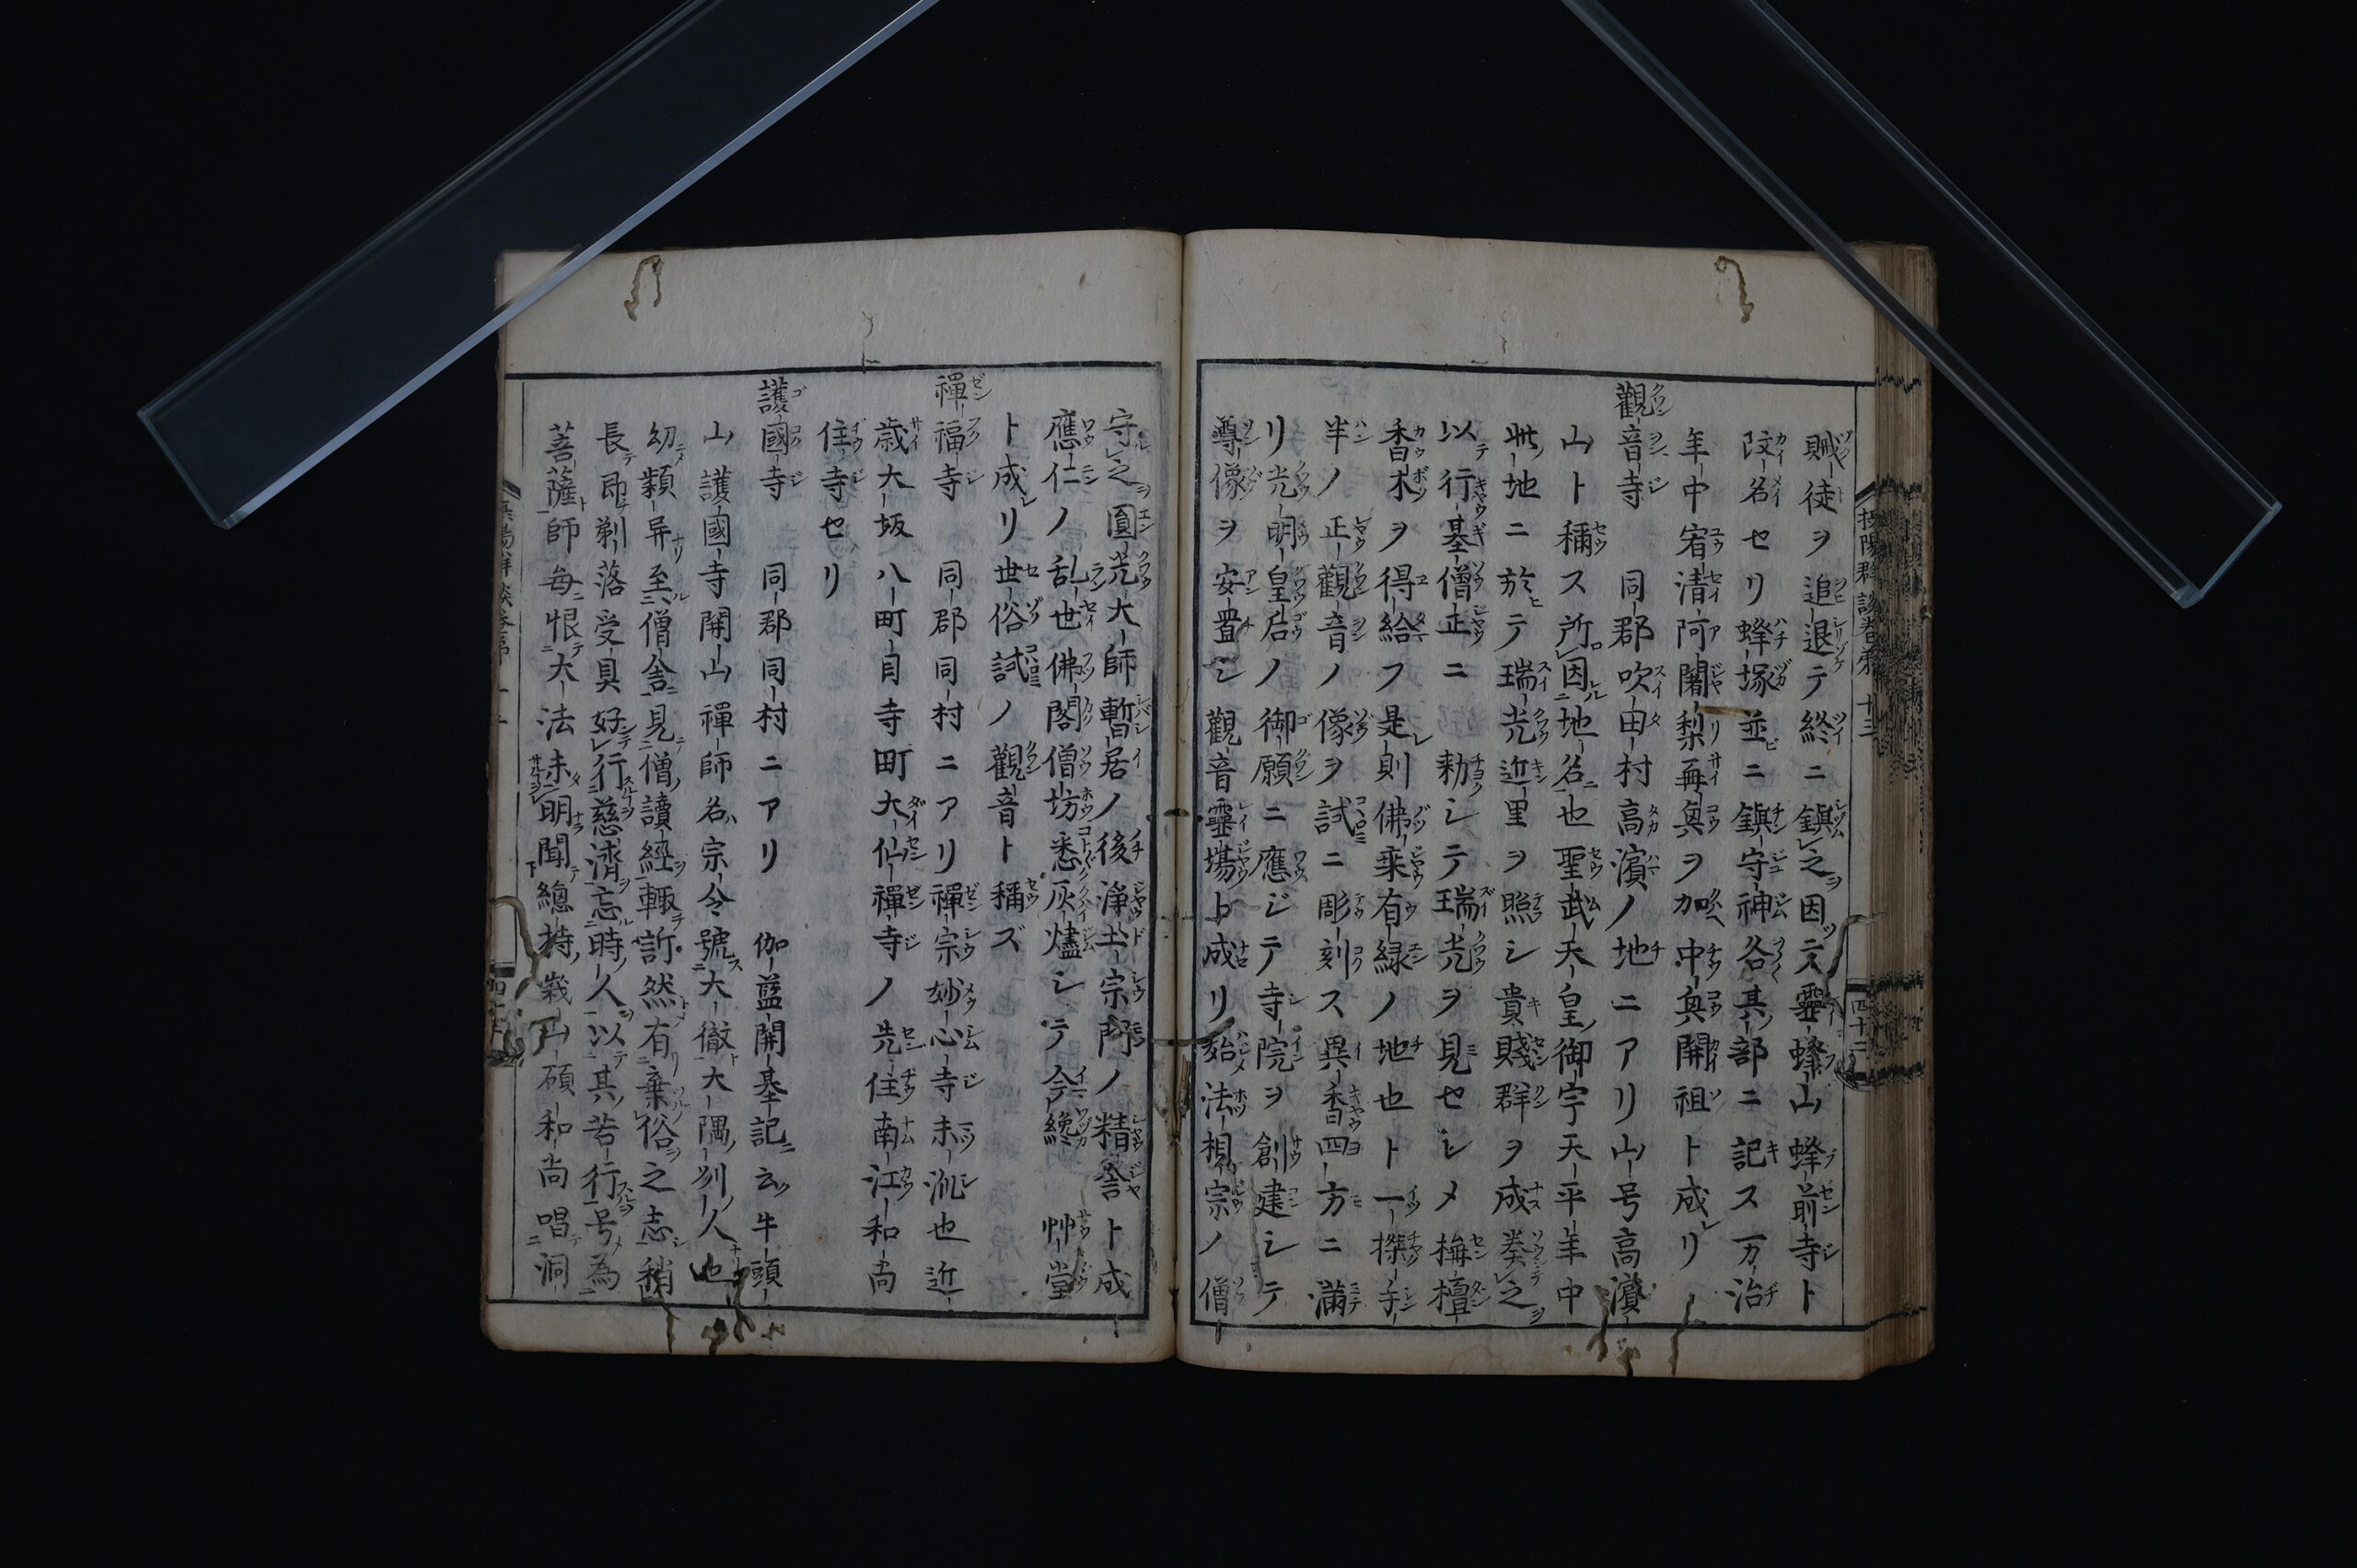 賊徒ヲ追退テ終ニ鎮之因テ霊蜂山蜂前寺ト
改名セリ蜂塚並ニ鎮守神各其部ニ記ス万治
年中宥清阿闍梨再興ヲ加中興開祖ト成リ
觀音寺 同郡吹田村高濱ノ地ニアリ山号高濱
山ト稱ス所因地名也聖武天皇御宇天平年中
此地ニ於テ瑞光近里ヲ照シ貴賤群ヲ成奏之
以行基僧正ニ勅シテ瑞光ヲ見セシメ栴檀
香木ヲ得給フ是則佛乗有縁ノ地也ト一搩手
半ノ正觀音ノ像ヲ試ニ彫刻ス異香四方ニ滿
リ光明皇后ノ御願ニ應ジテ寺院ヲ創建シテ
尊像ヲ安置シ觀音霊場ト成リ始法相宗ノ僧
守之圓光大師暫居ノ後淨土宗門ノ精舎ト成
應仁ノ乱世佛閣僧坊悉灰燼シテ今纔艸堂
ト成リ世俗試ノ觀音ト稱ズ
禪福寺 同郡同村ニアリ禪宗妙心寺末派也近
歳大坂八町目寺町大仙禪寺ノ先住南江和尚
住寺セリ
護國寺 同郡同村ニアリ 伽藍開基記云牛頭
山護國寺開山禪師名宗令號大徹大隅列人也
幼穎异至僧舎見僧讀經輙訢然有棄俗之志稍
長即剃落受具好行慈濟忘時人以其苦行号為
菩薩師毎恨大法未明聞總持峩山碩和尚唱洞
摂陽群談巻第十三
四十二